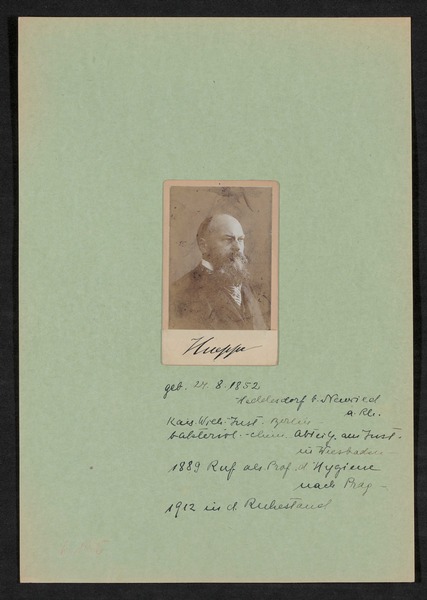 Hueppe
geb. 24. 8. 1852
Heddesdorf b. Neuwied
a. Rh.
Kais. Wilh. Inst. Berlin
bakteriol.-chem. Abteilg. am Inst.
in Wiesbaden
1889 Ruf als Prof. d. Hygiene
nach Prag -
1912 in d. Ruhestand